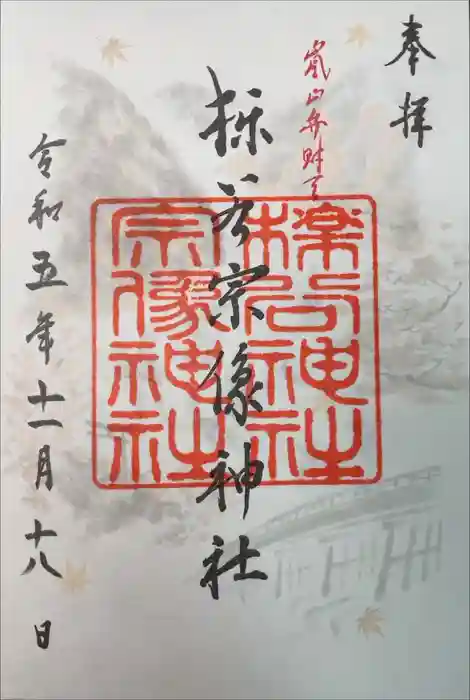 奉拝
嵐山弁財天
櫟谷宗像神社
櫟谷神社
宗像神社
令和五年十一月十八日